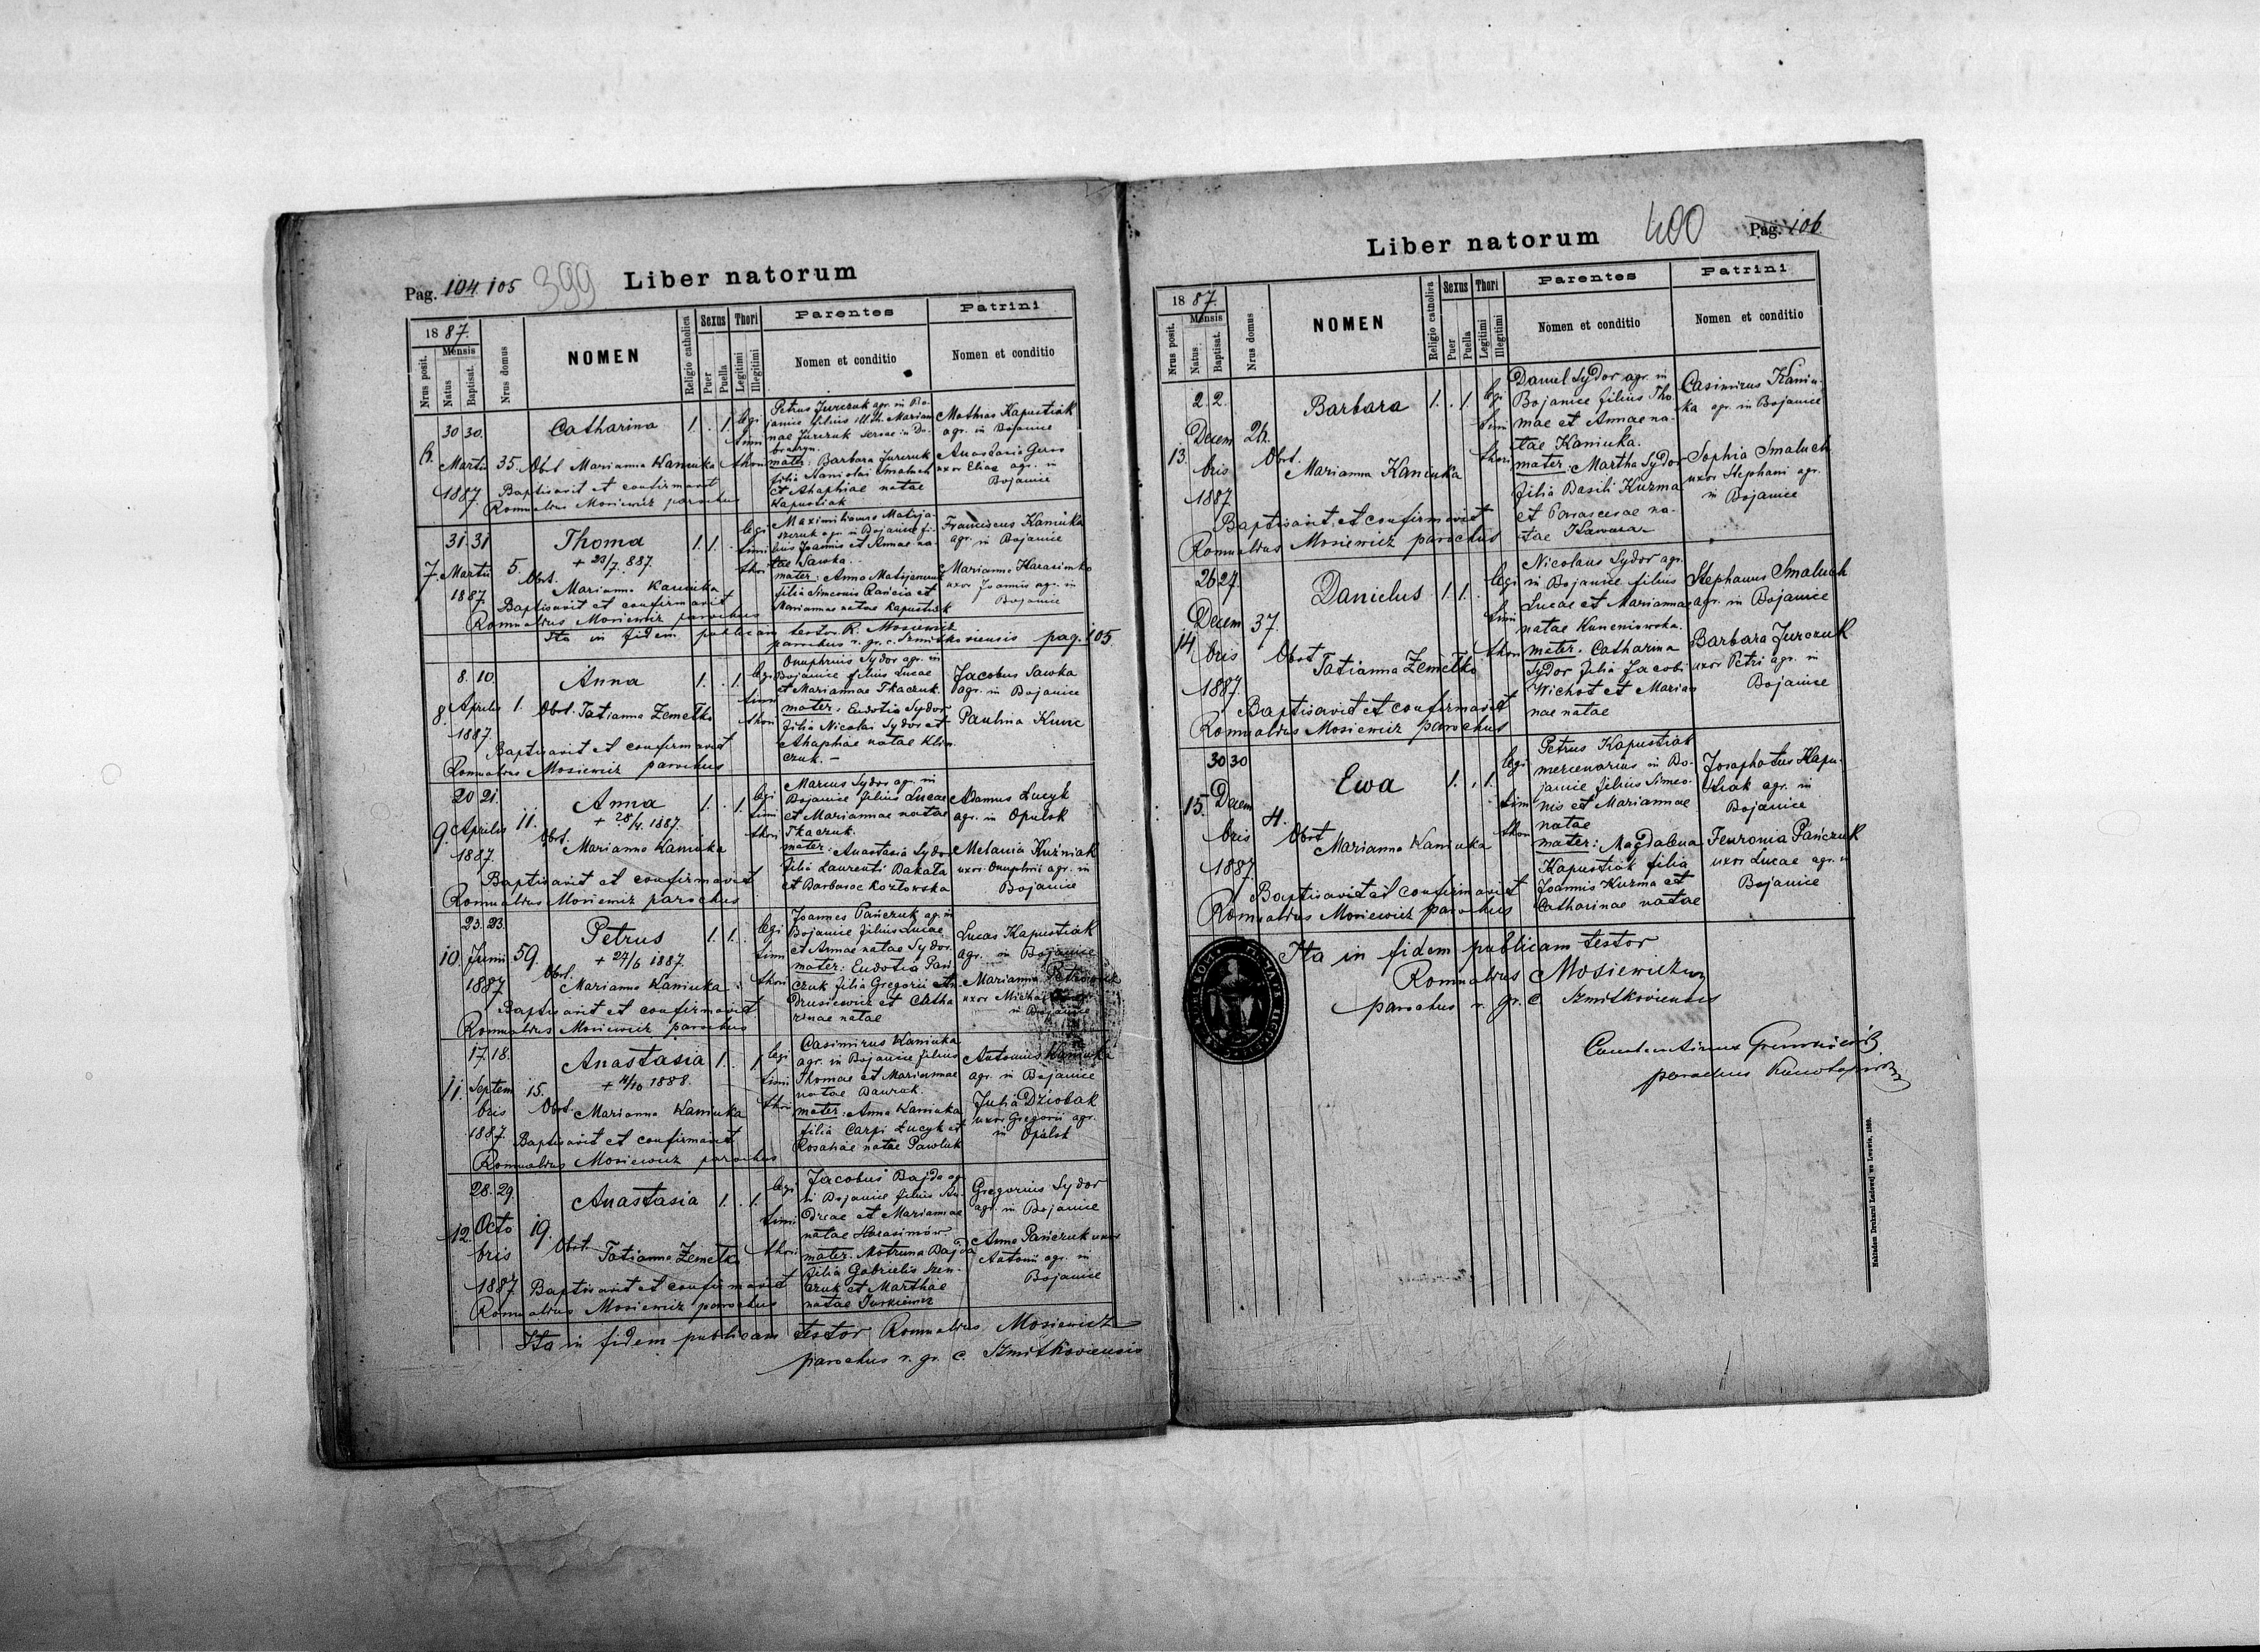 Pag. 104. 105 399 Liber natorum
1887.
Nrus posit.
Mensis
Natus
Baptisat.
Nrus domus
NOMEN
Religio catholica
Sexus
Puer
Puella
Thori
Legitimi
Illegitimi
Parentes
Nomen et conditio
Patrini
Nomen et conditio
6. 30 30. Martii 1887 35.
Catharina 1. . 1. legitimi thori
Obst. Marianna Kaniuka
Baptisavit et confirmavit
Romualdus Mosiewicz parochus
Petrus Jurczuk agr. in Bo-
janice filius ill. th. Marian
nae Jurczuk servae in Do-
braczyn.
mater: Barbara Jurczuk
filia Stanislai Smaluch
et Ahaphiae natae
Kapustiak
Mathias Kapustiak
agr. in Bojanice
Anastasia Geres
uxor Eliae agr. in
Bojanice
7. 31. 31 Martii 1887 5.
Thoma 1. 1. . legitimi thori
+ 23/7. 887.
Obst. Marianna Kaniuka
Baptisavit et confirmavit
Romualdus Mosiewicz parochus
Maximilianus Matija-
szczuk agr. in Bojanice fi-
lius Joannis et Annae na-
tae Sawka.
filia Simeonis Pańcio et
Mariannae natae Kapustiak
Franciscus Kaniuka
agr. in Bojanice
Marianna Harasimko
uxor Joannis agr. in
Bojanice
Ita in fidem publicam testor R. Mosiewicz
parochus r. gr. c. Szmitkoviensis pag. 105.
8. 8. 10. Aprilis 1887. 1.
Anna 1. . 1. legitimi thori
Obst. Tatianna Zemełko
Baptisavit et confirmavit
Romualdus Mosiewicz parochus
Onuphrius Sydor agr. in
Bojanice filius Lucae
et Mariannae Tkaczuk.
mater: Eudotia Sydor
filia Nicolai Sydor et
Ahaphiae natae Klim
czuk. —
Jacobus Sawka
agr. in Bojanice
Paulina Kunc
9. 20 21. Aprilis 1887. 11.
Anna 1. . 1. legitimi thori
+ 28/4. 1887.
Obst. Marianna Kaniuka
Baptisavit et confirmavit
Romualdus Mosiewicz parochus
Marcus Sydor agr. in
Bojanice filius Lucae
et Mariannae natae
Tkaczuk.
mater: Anastasia Sydor
filia Laurenti Bakała
et Barbarae Kozłowska
Adamus Łucyk
agr. in Opulsk
Melania Kuźniak
uxor Onuphrii agr. in
Bojanice
10. 23. 23. Junii 1887 59.
Petrus 1. 1. . legitimi thori
+ 27/6 1887.
Obst. Marianna Kaniuka
Baptisavit et confirmavit
Romualdus Mosiewicz parochus
Joannes Pańczuk agr. in
Bojanice filius Lucae
et Annae natae Sydor.
mater: Eudotia Pań
czuk filia Gregorii An
drusiewicz et Catha
rinae natae
Lucas Kapustiak
agr. in Bojanice
Marianna
uxor Michaelis agr.
in Bojanice
11. 17. 18. Septembris 1887. 15.
Anastasia 1. . 1. legitimi thori
+ 4/10 1888.
Obst. Marianna Kaniuka
Baptisavit et confirmavit
Romualdus Mosiewicz parochus
Casimirus Kaniuka
agr. in Bojanice filius
Thomae et Mariannae
natae
mater: Anna Kaniuka
filia Carpi Łucyk et
Rosaliae natae Pawluk
Antonius Kaniuka
agr. in Bojanice
Julia Dziobak
uxor Gregorii agr.
in Opulsk
12. 28. 29. Octobris 1887 19.
Anastasia 1. . 1. legitimi thori
Obst. Tatianna Zemełko
Baptisavit et confirmavit
Romualdus Mosiewicz parochus
Jacobus Bajda agr
in Bojanice filius An-
dreae et Mariannae
natae Harasimów.
mater: Motruna Bajda
filia Gabrielis Szew-
czuk et Marthae
natae Jurkiewicz
Gregorius Sydor
agr. in Bojanice
Anna Pańczuk uxor
Antonii agr. in
Bojanice
Ita in fidem publicam testor Romualdus Mosiewicz
parochus r. gr. c. Szmitkoviensis
Liber natorum 400 Pag. 106
1887.
Nrus posit.
Mensis
Natus
Baptisat.
Nrus domus
NOMEN
Religio catholica
Sexus
Puer
Puella
Thori
Legitimi
Illegitimi
Parentes
Nomen et conditio
Patrini
Nomen et conditio
13. 2. 2. Decembris 1887 24.
Barbara 1. . 1. legitimi thori
Obst. Marianna Kaniuka
Baptisavit et confirmavit
Romualdus Mosiewicz parochus
Daniel Sydor agr. in
Bojanice filius Tho
mae et Annae na-
tae Kaniuka.
mater: Martha Sydor
filia Basili Kuzma
et Parascevae na-
tae
Casimirus Kaniu-
ka agr. in Bojanice
Sophia Smaluch
uxor Stephani agr.
in Bojanice
14. 26 27. Decembris 1887. 37.
Danielus 1. 1. . legitimi thori
Obst Tatianna Zemełko
Baptisavit et confirmavit
Romualdus Mosiewicz parochus
Nicolaus Sydor agr.
in Bojanice filius
Lucae et Mariannae
natae
mater: Catharina
Sydor filia Jacobi
Wichot et Marian
nae natae
Stephanus Smaluch
agr. in Bojanice
Barbara Jurczuk
uxor Petri agr. in
Bojanice
15. 30 30 Decembris 1887 4.
Ewa 1. . 1. legitimi thori
Obst Marianna Kaniuka
Baptisavit et confirmavit
Romualdus Mosiewicz parochus
Petrus Kapustiak
mercenarius in Bo-
janice filius Simeo-
nis et Mariannae
natae
mater: Magdalena
Kapustiak filia
Joannis Kuzma et
Catharinae natae
Josaphatus Kapu-
stiak agr. in
Bojanice
Feuronia Pańczuk
uxor Lucae agr. in
Bojanice
Ita in fidem publicam testor
Romualdus Mosiewicz
parochus r. gr. c. Szmitkoviensis
parochus
Nakładem Drukarni Ludowej we Lwowie, 1880.